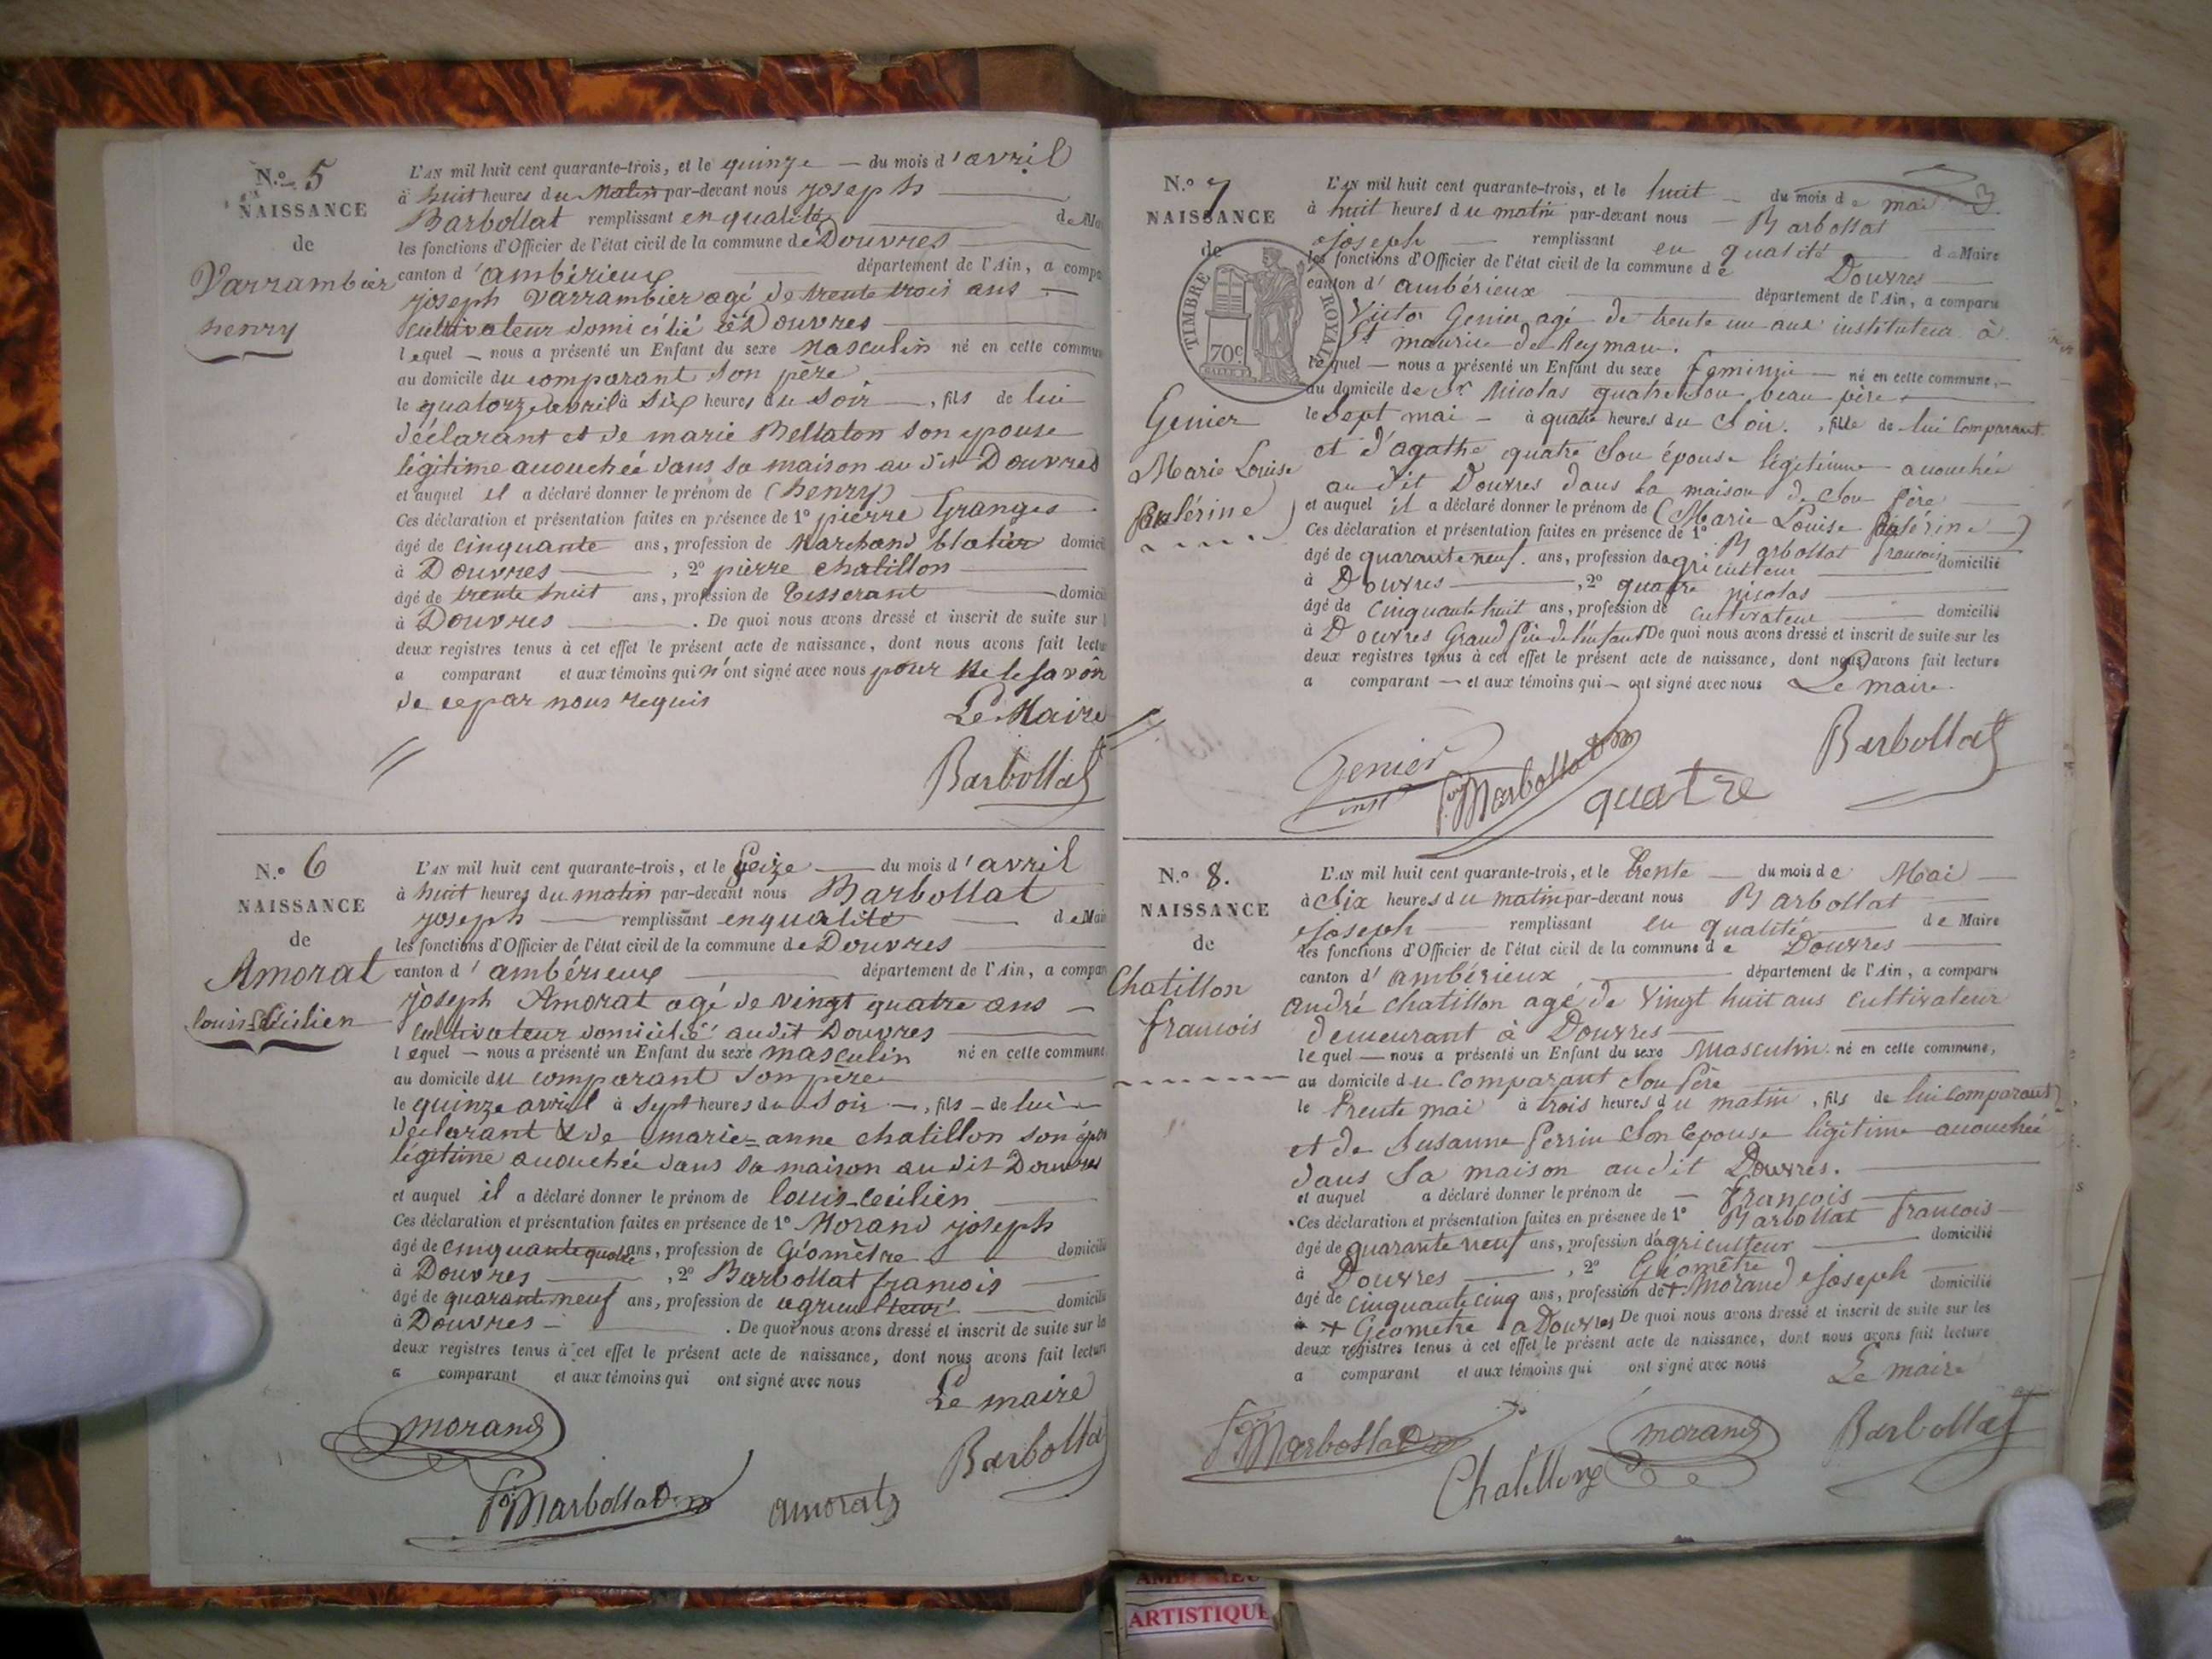 N.º 5
NAISSANCE
de
Varrambier
henry
L'AN mil huit cent quarante-trois, et le quinze — du mois d'avril
à huit heures du Matin par-devant nous joseph
Barbollat remplissant en qualité de Mai
les fonctions d'Officier de l'état civil de la commune de Douvres
canton d'ambérieux département de l'Ain, a compa
joseph Varrambier agé de trente trois ans
cultivateur domicilié à Douvres
lequel — nous a présenté un Enfant du sexe Masculin né en cette commun
au domicile du comparant son père
le quatorze avril à six heures du soir —, fils de lui
déclarant et de marie Bellaton son epouse
légitime auouchée dans sa maison au dit Douvres
et auquel il a déclaré donner le prénom de (henry)
Ces déclaration et présentation faites en présence de 1º pierre Granges
âgé de cinquante ans, profession de Marchand blatier domici
à Douvres , 2º pierre chatillon
âgé de trente huit ans, profession de Tisserant domici
à Douvres . De quoi nous avons dressé et inscrit de suite sur l
deux registres tenus à cet effet le présent acte de naissance, dont nous avons fait lectu
a comparant et aux témoins qui n'ont signé avec nous pour ne le savoir
de ce par nous requis
Le Maire
Barbollat
N.º 6
NAISSANCE
de
Amorat
louis-Cécilien
L'AN mil huit cent quarante-trois, et le seize — du mois d'avril
à huit heures du matin par-devant nous Barbollat
joseph — remplissant en qualité — de Mair
les fonctions d'Officier de l'état civil de la commune de Douvres
canton d'ambérieux département de l'Ain, a compar
joseph Amorat agé de vingt quatre ans —
cultivateur domicilié audit Douvres
lequel — nous a présenté un Enfant du sexe masculin né en cette commune
au domicile du comparant son père
le quinze avril à sept heures du soir —, fils — de lui
déclarant & de marie=anne chatillon son épou
légitime auouchée dans sa maison au dit Douvres
et auquel il a déclaré donner le prénom de louis-Cécilien
Ces déclaration et présentation faites en présence de 1º Morand joseph
âgé de cinquante quatre ans, profession de Géomètre domicilié
à Douvres , 2º Barbollat francois
âgé de quarante neuf ans, profession de agriculteur domicilié
à Douvres — . De quoi nous avons dressé et inscrit de suite sur les
deux registres tenus à cet effet le présent acte de naissance, dont nous avons fait lecture
a comparant et aux témoins qui ont signé avec nous
Le maire
morand
Barbolla
fois Barbollat
amorat
N.º 7
NAISSANCE
de
TIMBRE ROYAL
70c
Genier
Marie Louise
L'AN mil huit cent quarante-trois, et le huit — du mois de mai
à huit heures du matin par-devant nous — Barbollat
Joseph — remplissant en qualité de Maire
les fonctions d'Officier de l'état civil de la commune de Douvres
canton d'ambérieux département de l'Ain, a comparu
Victor Genier agé de trente un ans instituteur à
St maurice de Reyman.
lequel — nous a présenté un Enfant du sexe feminin — né en cette commune,
au domicile de Sr Nicolas quatre son beau père
le sept mai — à quatre heures du soir. , fille de lui comparant
et d'agathe quatre son épouse légitime auouchée
au dit Douvres dans la maison de son père
et auquel il a déclaré donner le prénom de (Marie Louise
Ces déclaration et présentation faites en présence de 1º Barbollat francois
âgé de quarante neuf. ans, profession d'agriculteur domicilié
à Douvres , 2º quatre nicolas
âgé de cinquante huit ans, profession de cultivateur domicilié
à Douvres Grand père de l'enfant De quoi nous avons dressé et inscrit de suite sur les
deux registres tenus à cet effet le présent acte de naissance, dont nous avons fait lecture
a comparant — et aux témoins qui — ont signé avec nous Le maire.
Genier
inst
fois Barbollat
quatre
Barbollat
N.º 8.
NAISSANCE
de
Chatillon
francois
L'AN mil huit cent quarante-trois, et le trente — du mois de Mai —
à six heures du matin par-devant nous Barbollat
Joseph — remplissant en qualité de Maire
les fonctions d'Officier de l'état civil de la commune de Douvres
canton d'ambérieux département de l'Ain, a comparu
andré chatillon agé de vingt huit ans cultivateur
demeurant à Douvres
lequel — nous a présenté un Enfant du sexe Masculin. né en cette commune,
au domicile du comparant son père
le trente mai à trois heures du matin , fils de lui comparant
et de Susanne perrin son epouse légitime auouchée
dans sa maison au dit Douvres.
et auquel a déclaré donner le prénom de — françois
Ces déclaration et présentation faites en présence de 1º Barbollat francois
âgé de quarante neuf ans, profession d'agriculteur domicilié
à Douvres , 2º Géomètre
âgé de cinquante cinq ans, profession de + Morand Joseph domicilié
à + Géometre a Douvres De quoi nous avons dressé et inscrit de suite sur les
deux registres tenus à cet effet le présent acte de naissance, dont nous avons fait lecture
a comparant et aux témoins qui ont signé avec nous Le maire
fois Barbollat
Chatillon
morand
Barbollat
ARTISTIQUE